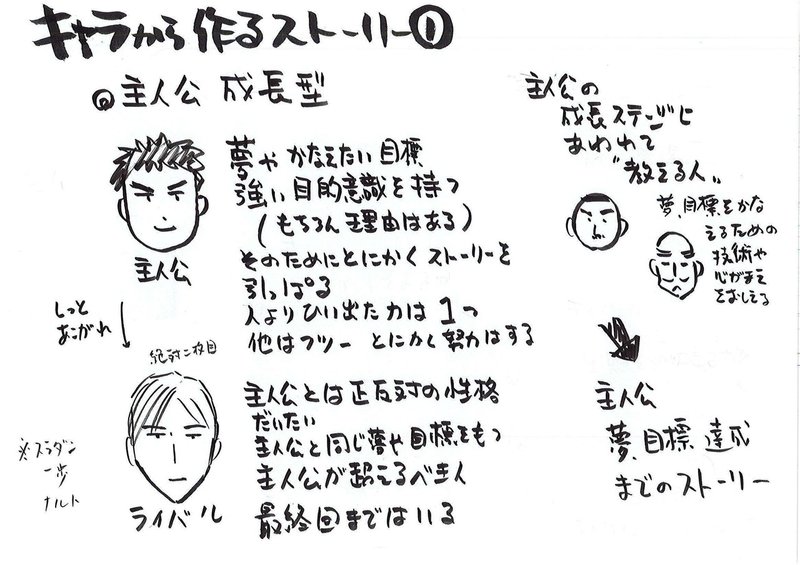 キャラから作るストーリー①
◎主人公 成長型
夢やかなえたい目標
強い目的意識を持つ
(もちろん理由はある)
主人公
そのためにとにかくストーリーを
引っぱる
人よりひい出た力は1つ
他はフツー とにかく努力はする
しっと
あこがれ
絶対二枚目
主人公とは正反対の性格
だいたい
主人公と同じ夢や目標をもつ
主人公が超えるべき人
ライバル
最終回まではいる
※スラダン
一歩
ナルト
主人公の
成長ステージに
あわわて
"教える人"
夢、目標をかな
えるための
技術や
心がまえ
をおしえる
主人公
夢、目標達成
までのストーリー